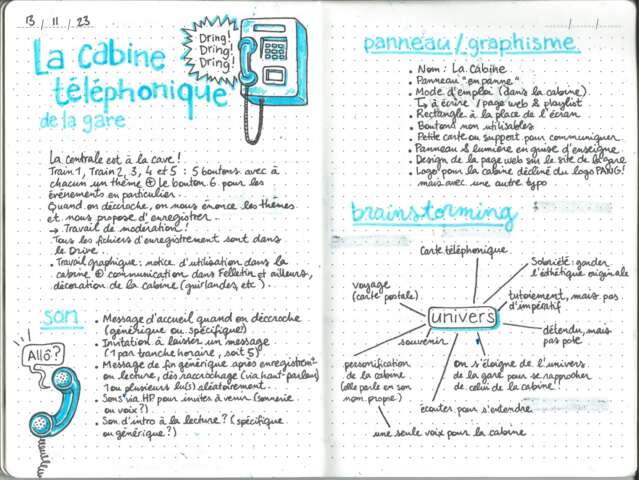 13 / 11 / 23
La cabine
téléphonique
de la gare
Dring!
Dring!
Dring!
La centrale est à la cave !
Train 1, Train 2, 3, 4 et 5 : 5 boutons avec à
chacun un thème ⊕ Le bouton 6 pour les
événements en particulier.
Quand on décroche, on nous énonce les thèmes
et nous propose d'enregistrer.
→ Travail de modération !
Tous les fichiers d'enregistrement sont dans
le Drive.
• Travail graphique : notice d'utilisation dans la
cabine ⊕ communication dans Felletin et ailleurs,
décoration de la cabine (guirlandes, etc).
son
Allô?
• Message d'accueil quand on décroche
(générique ou spécifique?)
• Invitation à laisser un message
(1 par tranche horaire, soit 5)
• Message de fin générique après enregistremt
ou lecture, dès raccrochage (via haut-parleurs)
1 ou plusieurs lu(s) aléatoirement..
• Sons via HP pour inviter à venir (sonnerie
ou voix?)
• Son d'intro à la lecture? (spécifique
ou générique?)
panneau/graphisme
• Nom : La Cabine
• Panneau "en panne"
• Mode d'emploi (dans la cabine)
à écrire / page web & playlist
• Rectangle à la place de l'écran
• Boutons non utilisables
• Petite carte ou support pour communiquer
• Panneau & lumière en guise d'enseigne
• Design de la page web sur le site de la gare
• Logo pour la cabine décliné du logo PANG!
mais avec une autre typo
brainstorming
Carte téléphonique
Sobriété : garder
l'esthétique originale
voyage
(carte postale)
tutoiement, mais pas
d'impératif
univers
détendu, mais
pas pote
souvenir
personification
de la cabine
(elle parle en son
nom propre)
on s'éloigne de l'univers
de la gare pour se rapprocher
de celui de la cabine
écouter pour s'entendre
une seule voix pour la cabine